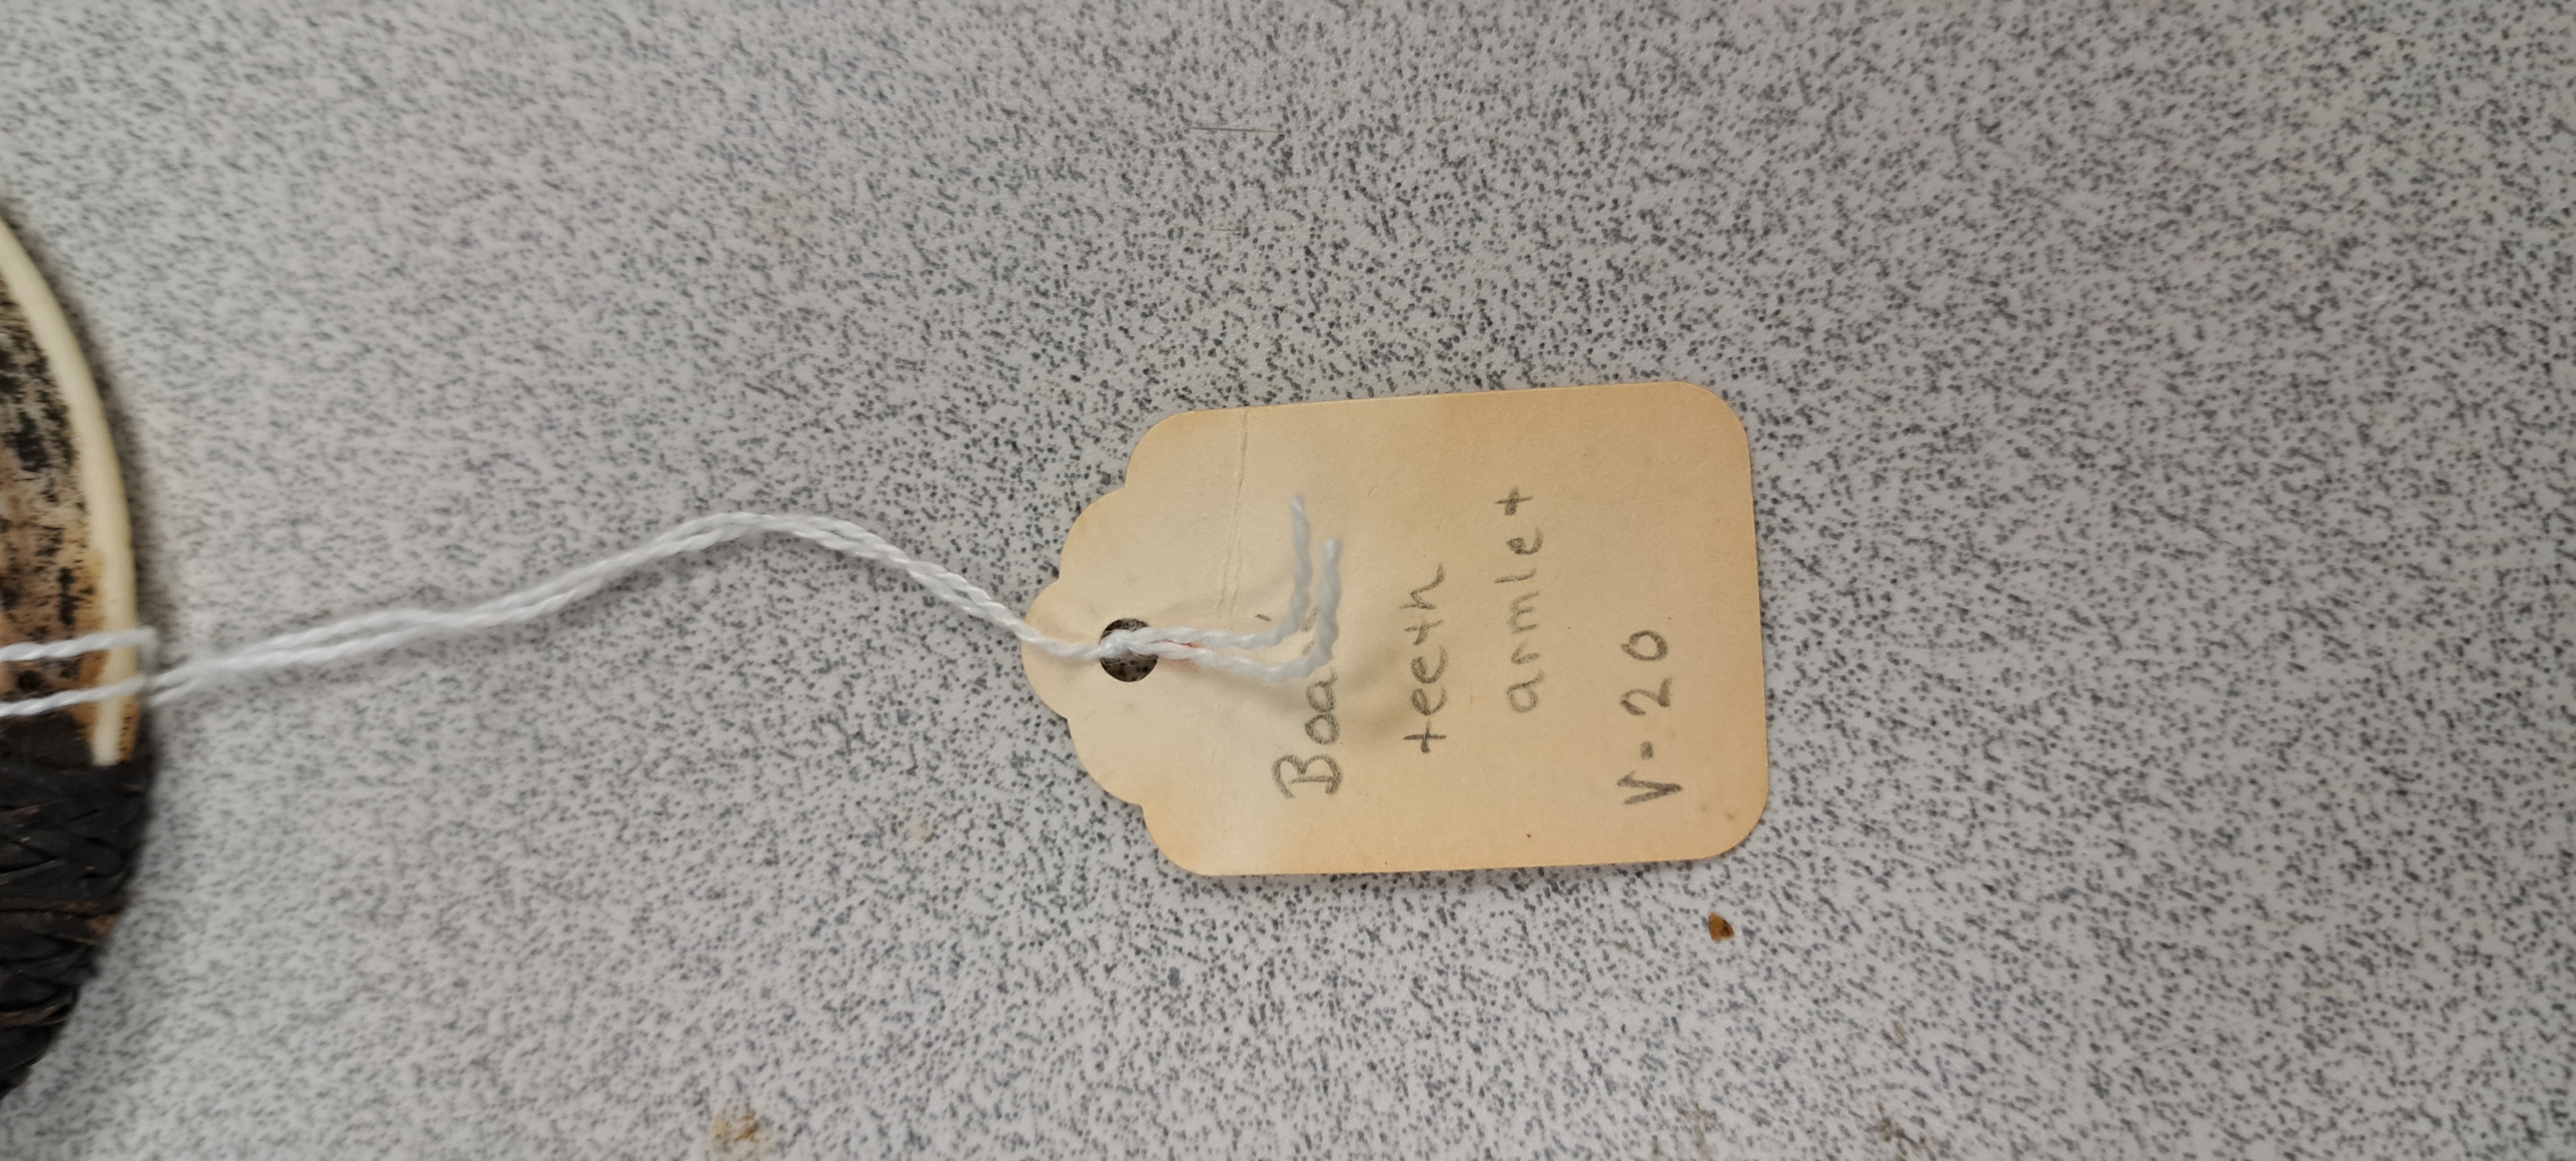 Boar's
teeth
armlet
V-20